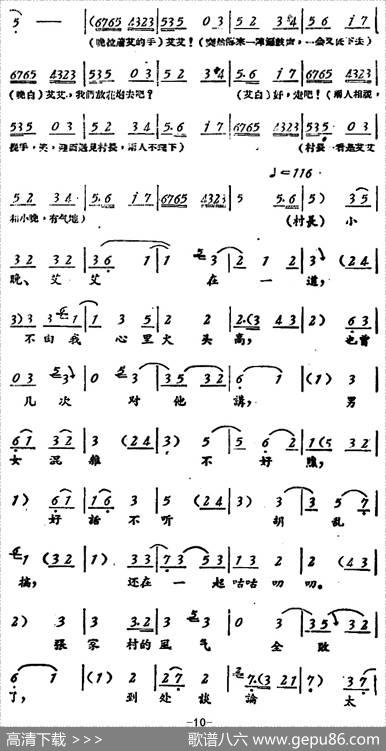 5 — — (6765 4323 535 0 3 5 2 3 4 5·6 i 7
(晚拉着艾的手) 艾艾! (突然傳來一陣鑼鼓声,一会又低下去)
6765 4323 535 0 3 5 2 3 4 5·6 i 7 6765 4323
(晚白) 艾艾,我們放花炮去吧? (艾白) 好,走吧! (兩人相視,
535 0 3 5 2 3 4 5·6 i 7 6765 4323 535 0 3
拉手,笑,迎面遇見村長,兩人不理下) (村長一看是艾艾
♩=116
5 2 3 4 5·6 i 7 6765 4323 5 5·6 5) 3 5
和小晚,有气地) (村長) 小
3 2 3 2 3 6 1 1 5 3 2 1 2 3 (2 4
晚、艾 艾 在 一 道,
3) 3 3 1 1 3 5 2 2 2·(3 4 3 2) 6 3
不由我 心里火 头 高, 也曾
0 3 5 3 0 5 3 3 5 3 2 6 1 (1) 3
几 次 对 他 講, 男
6 1 3 2 3 (2 4 3) 5 5 6 2 1 (5 3 2
女 混 雜 不 好 瞧,
1) 6 1 1 6 3 5 (2 4 3) 3 3 5 7
好 話 不 听 胡 乱
6 1 (3 2 1) 3 3 7 3 5 3 1 3 2 2 (4 3
搞, 还在 一 起 咕咕 叨 叨。
2) 3 3 3·2 3 5 3 0 3 3 5 3 2
張 家 村的 風 气 全 敗
6 1 (1) 2 2 7 2 2 7·(3 2 1 7) 3 7
了, 到 处 談 論 太
—10—
高清下载 >>>
歌谱八六 www.gepu86.com